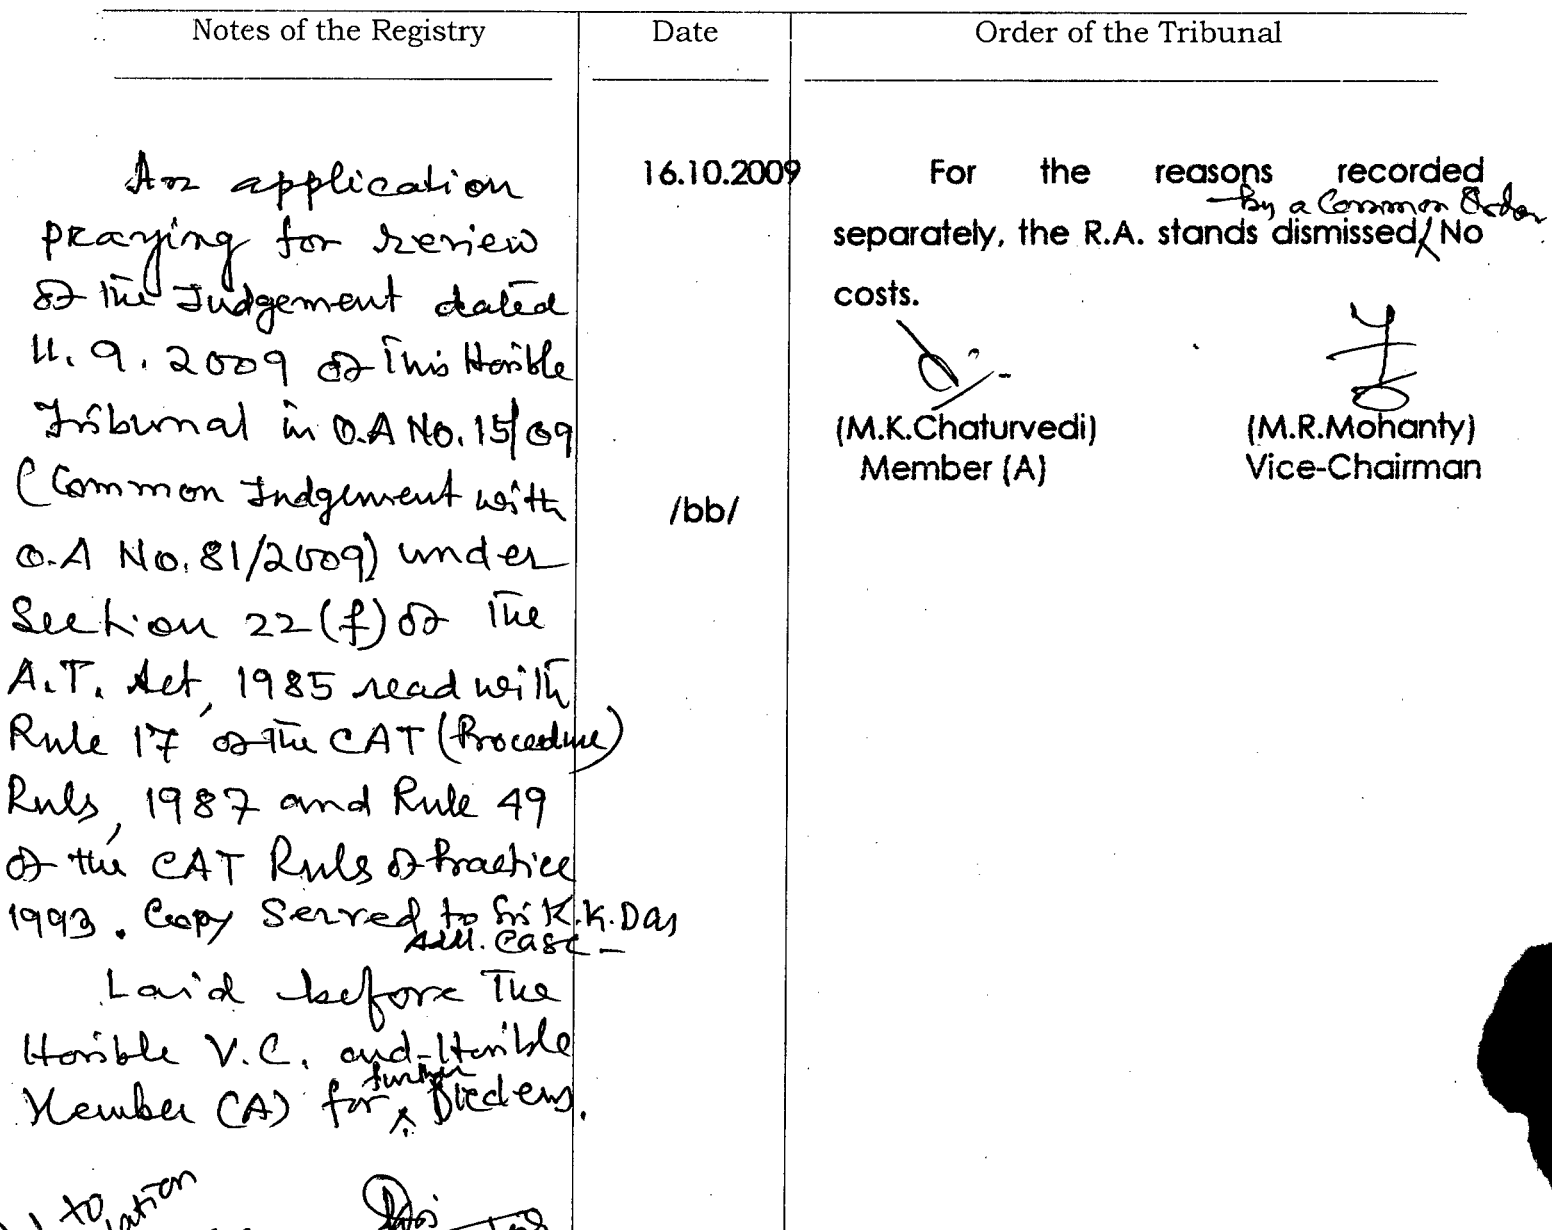 Notes of the Registry
Date
Order of the Tribunal
An application
praying for review
of the Judgement dated
11.9.2009 of This Hon'ble
Tribunal in O.A No. 15/09
(Common Judgement with
O.A No. 81/2009) under
Section 22(f) of The
A.T. Act, 1985 read with
Rule 17 of The CAT (Procedure)
Ruls, 1987 and Rule 49
of the CAT Ruls of Practice
1993. Copy Served to Sri K.K. Das
Addl. Case
Laid before The
Hon'ble V.C. and Hon'ble
further
Member (A) for
16.10.2009
/bb/
For the reasons recorded
by a Common Order
separately, the R.A. stands dismissed No
costs.
(M.K.Chaturvedi)
Member (A)
(M.R.Mohanty)
Vice-Chairman
to